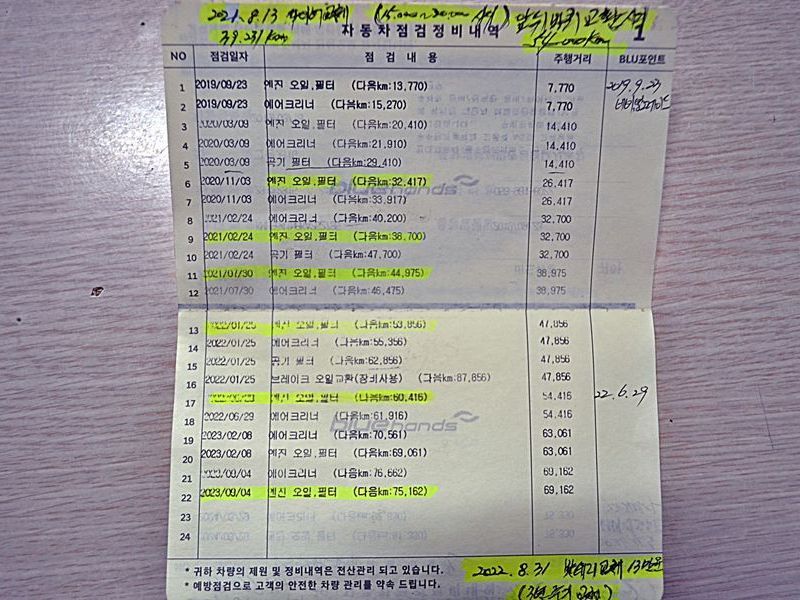 2021.8.13 타이어교체 (15,000~20,000 시) 앞뒤바퀴 교환시
39.231km 자동차점검정비내역 54,000km 1
NO 점검일자 점 검 내 용 주행거리 BLU포인트
1 2019/09/23 엔진 오일,필터 (다음km:13,770) 7,770 2019.9.23
2 2019/09/23 에어크리너 (다음km:15,270) 7,770
3 2020/03/09 엔진 오일,필터 (다음km:20,410) 14,410
4 2020/03/09 에어크리너 (다음km:21,910) 14,410
5 2020/03/09 공기 필터 (다음km:29,410) 14,410
6 2020/11/03 엔진 오일,필터 (다음km:32,417) 26,417
7 2020/11/03 에어크리너 (다음km:33,917) 26,417
8 2021/02/24 에어크리너 (다음km:40,200) 32,700
9 2021/02/24 엔진 오일,필터 (다음km:38,700) 32,700
10 2021/02/24 공기 필터 (다음km:47,700) 32,700
11 2021/07/30 엔진 오일,필터 (다음km:44,975) 38,975
12 2021/07/30 에어크리너 (다음km:46,475) 38,975
13 2022/01/25 엔진 오일,필터 (다음km:53,856) 47,856
14 2022/01/25 에어크리너 (다음km:55,356) 47,856
15 2022/01/25 공기 필터 (다음km:62,856) 47,856
16 2022/01/25 브레이크 오일교환(장비사용) (다음km:87,856) 47,856
17 2022/06/29 엔진 오일,필터 (다음km:60,416) 54,416 22.6.29
18 2022/06/29 에어크리너 (다음km:61,916) 54,416
bluehands
19 2023/02/08 에어크리너 (다음km:70,561) 63,061
20 2023/02/08 엔진 오일,필터 (다음km:69,061) 63,061
21 2023/09/04 에어크리너 (다음km:76,662) 69,162
22 2023/09/04 엔진 오일,필터 (다음km:75,162) 69,162
23
24
* 귀하 차량의 제원 및 정비내역은 전산관리 되고 있습니다.
* 예방점검으로 고객의 안전한 차량 관리를 약속 드립니다.
2022.8.31 밧데리교체 13만원